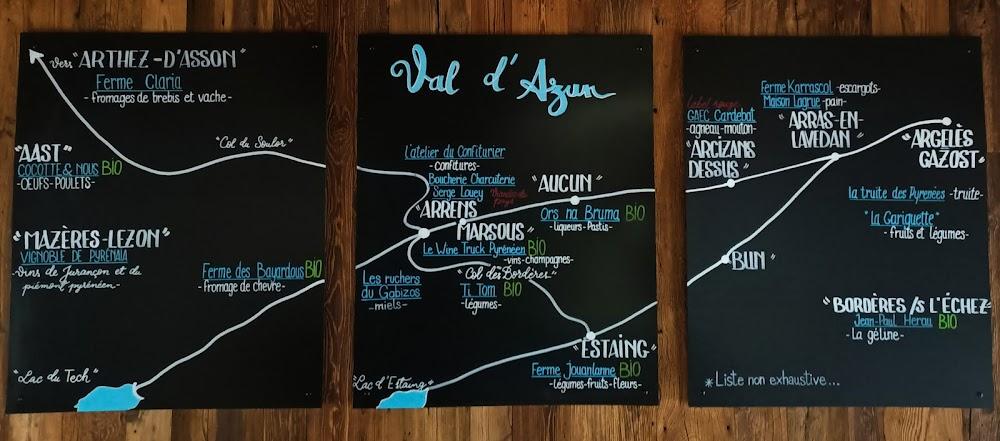 Vers "ARTHEZ-D'ASSON"
Ferme Claria
-fromages de brebis et vache-
"Col du Soulor"
"AAST"
COCOTTE & NOUS BIO
-OEUFS-POULETS-
"MAZÈRES-LEZON"
VIGNOBLE DE PYRENAIA
-Vins de Jurançon et du
piémont pyrénéen-
Ferme des Bayardous BIO
-Fromage de chèvre-
"Lac du Tech"
Val d'Azun
L'atelier du Confiturier
-confitures-
Boucherie Charcuterie
Serge Louey
"ARRENS
MARSOUS"
"AUCUN"
Ors na Bruma BIO
-liqueurs-Pastis-
Le Wine Truck Pyrénéen BIO
-vins-champagnes-
"Col des Bordères"
Les ruchers
du Gabizos
-miels-
Ti Tom BIO
-légumes-
"ESTAING"
Ferme Jouanlanne BIO
-légumes-fruits-fleurs-
"Lac d'Estaing"
Ferme Karrascal -escargots-
Maison Lagrue -pain-
Label rouge
GAEC Cardebat
-agneau-mouton-
"ARCIZANS
DESSUS"
"ARRAS-EN-
LAVEDAN"
"ARGELÈS
GAZOST"
la truite des Pyrénées -truite-
"la Gariguette"
-fruits et légumes-
"BUN"
"BORDÈRES /S L'ÉCHEZ"
Jean-Paul Herau BIO
-La géline-
*Liste non exhaustive...